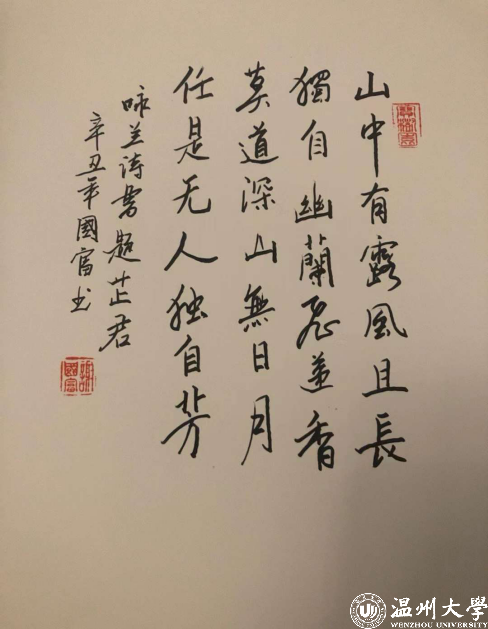 山中有露風且長
獨自幽蘭忍並香
莫道深山無日月
任是无人独自芳
咏兰诗書題芷君
辛丑年國富书
温州大學
WENZHOU UNIVERSITY